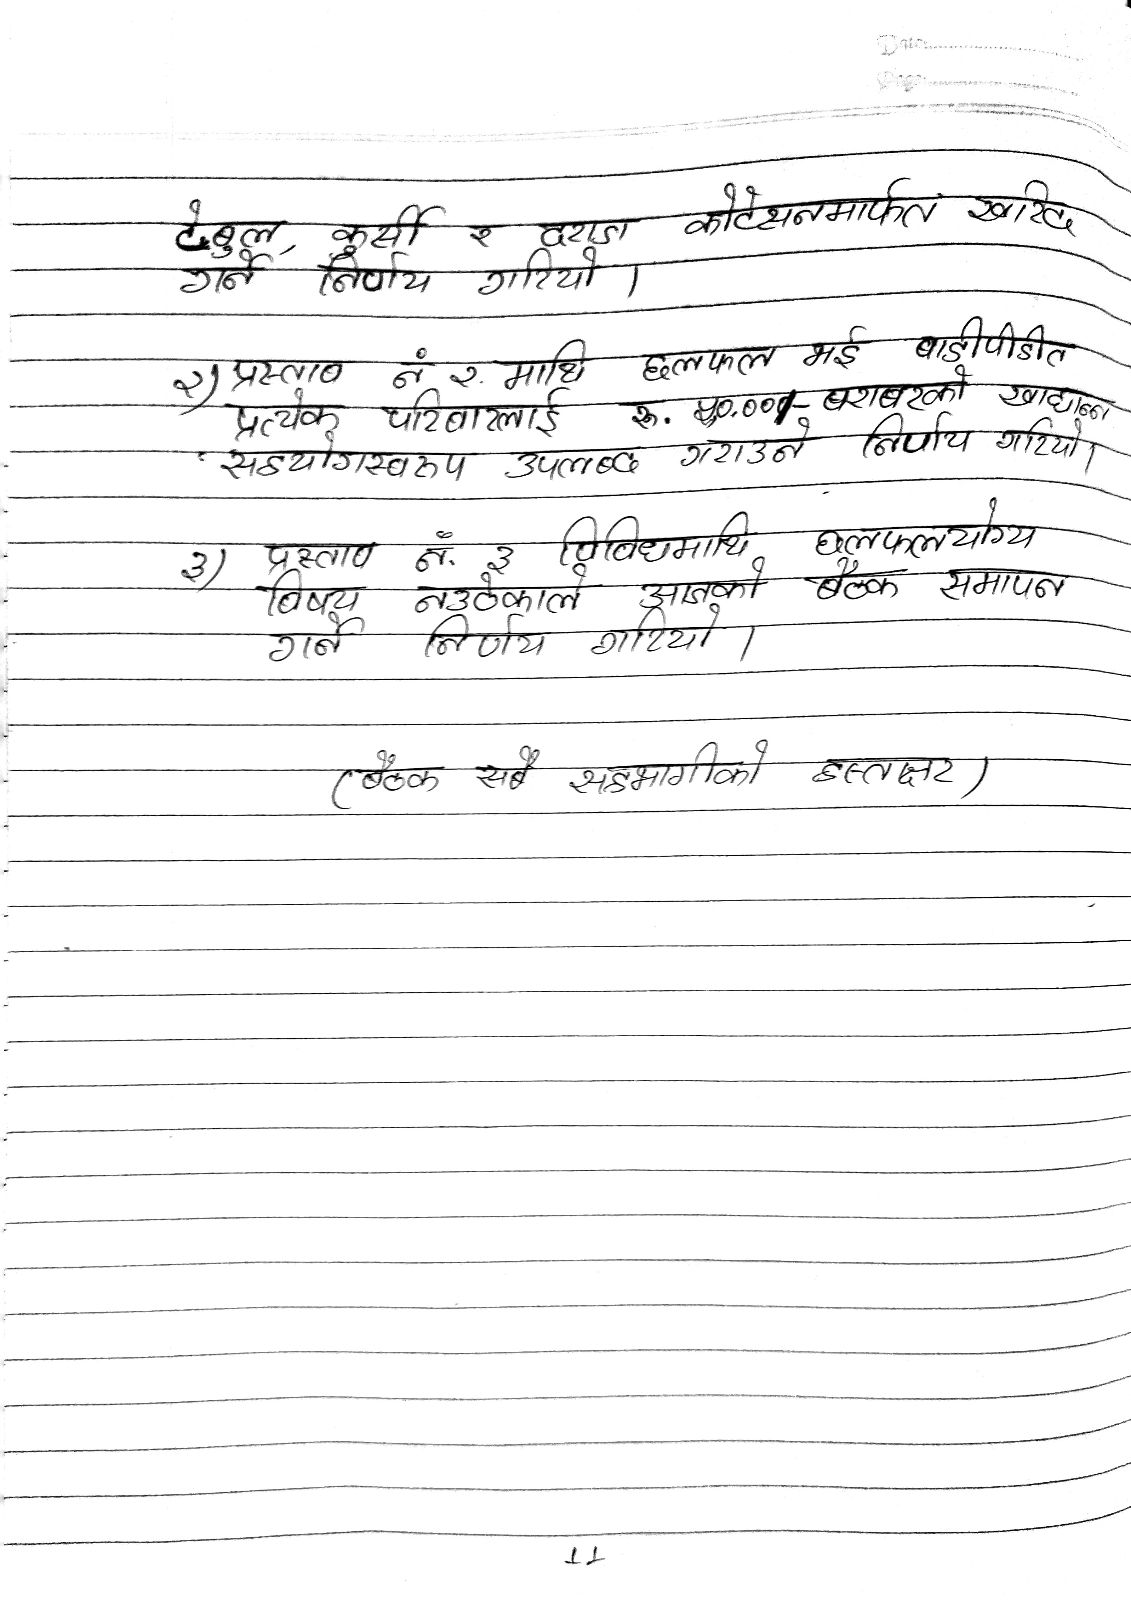 Date:
Page:
टेबुल, कुर्सी र दराज कोटेशनमार्फत खरिद
गर्ने निर्णय गरियो ।
२) प्रस्ताव नं २. माथि छलफल भई बाढीपीडीत
प्रत्येक परिवारलाई रू. ५०,०००/- बराबरको खाद्यान्न
सहयोगस्वरुप उपलब्ध गराउने निर्णय गरियो ।
३) प्रस्ताव नं. ३ विविधमाथि छलफलयोग्य
विषय नउठेकाले आजको बैठक समापन
गर्ने निर्णय गरियो ।
(बैठक सबै सहभागीको हस्ताक्षर)
11